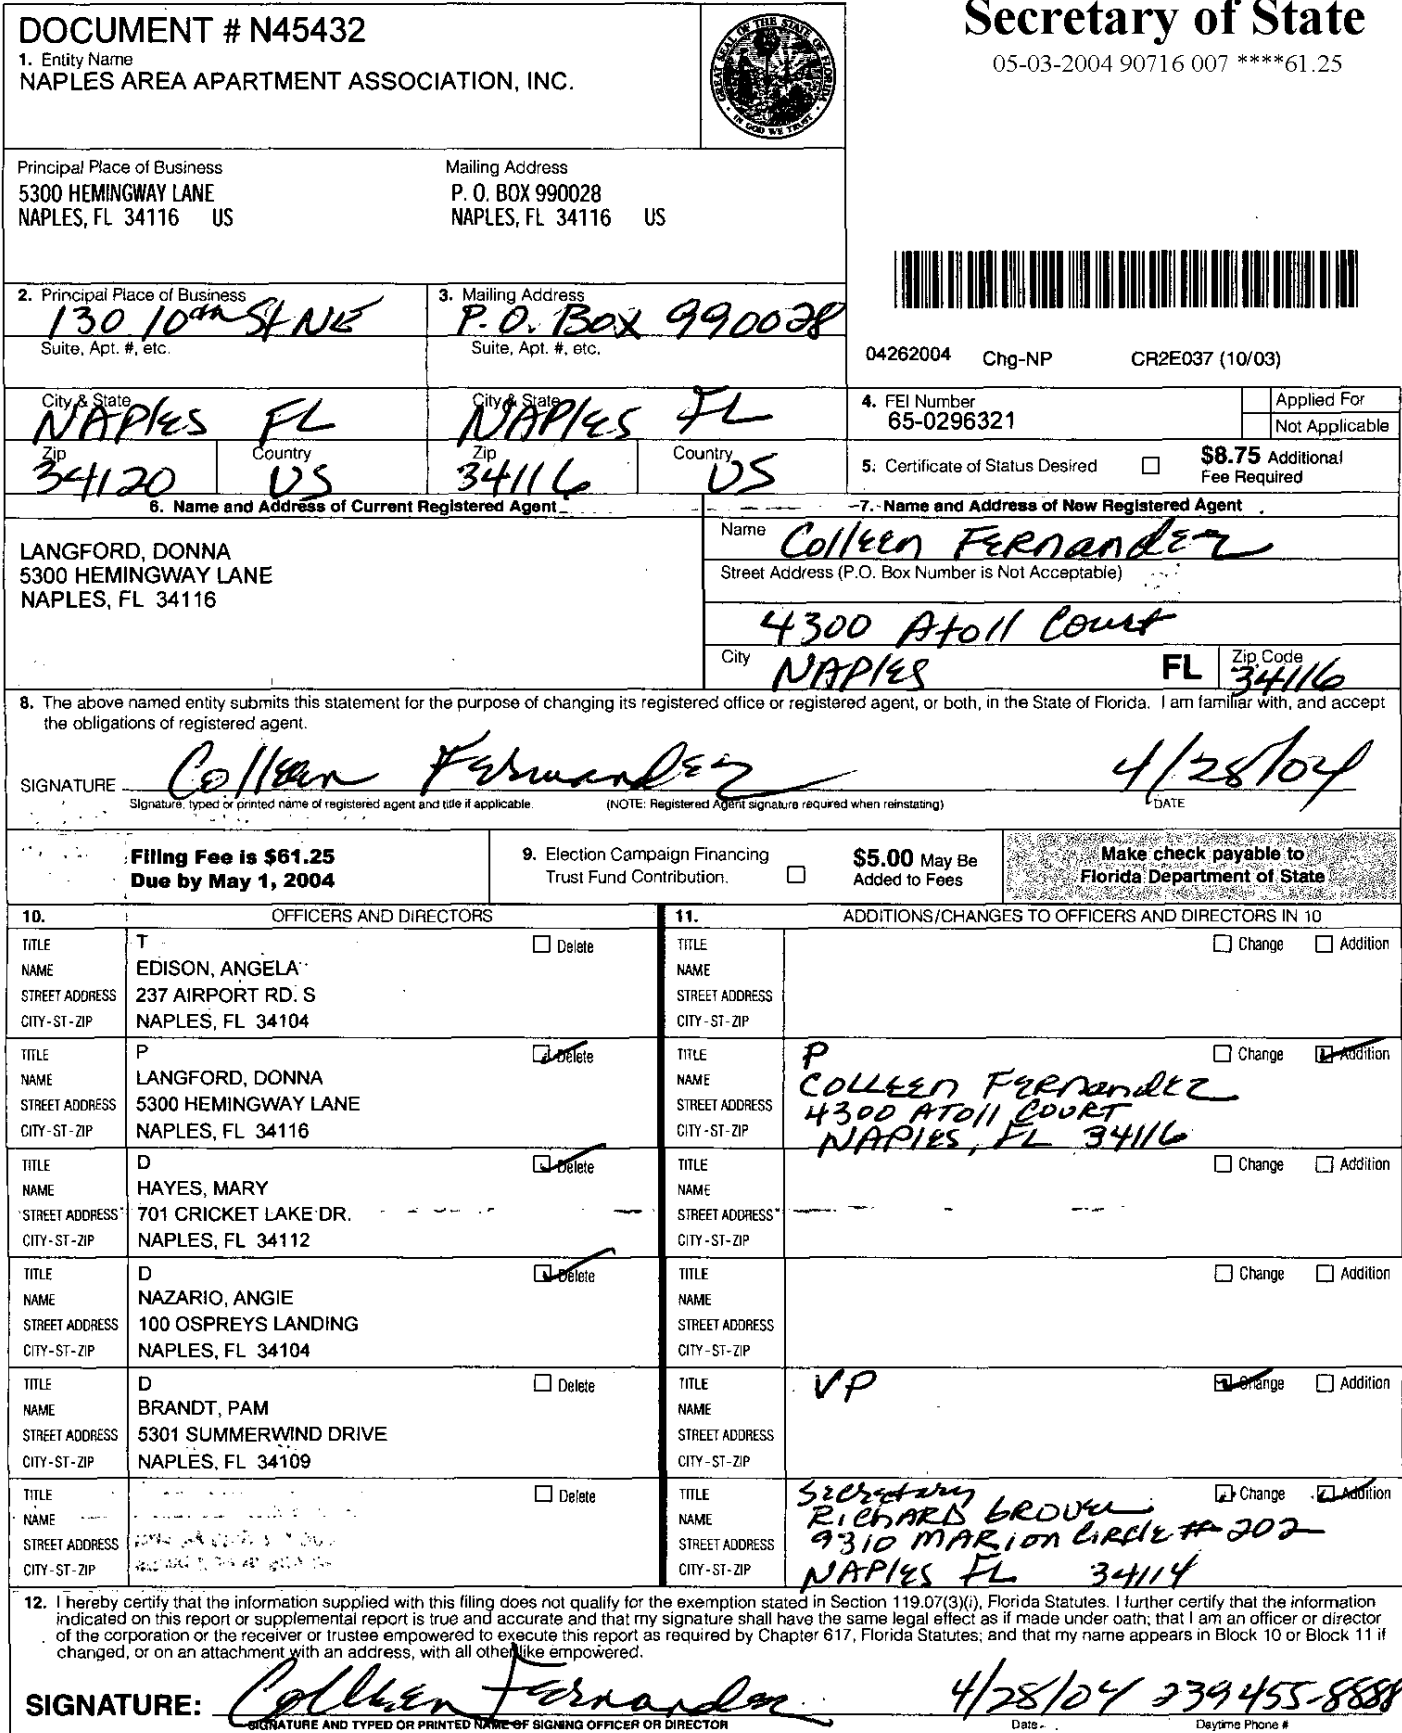 DOCUMENT # N45432
1. Entity Name
NAPLES AREA APARTMENT ASSOCIATION, INC.
GREAT SEAL OF THE STATE OF FLORIDA
IN GOD WE TRUST
Secretary of State
05-03-2004 90716 007 ****61.25
Principal Place of Business
5300 HEMINGWAY LANE
NAPLES, FL 34116 US
Mailing Address
P. O. BOX 990028
NAPLES, FL 34116 US
2. Principal Place of Business
130 10th St NE
Suite, Apt. #, etc.
City & State
NAPLES FL
Zip
34120
Country
US
3. Mailing Address
P.O. Box 990028
Suite, Apt. #, etc.
City & State
NAPLES FL
Zip
34116
Country
US
04262004 Chg-NP CR2E037 (10/03)
4. FEI Number
65-0296321
Applied For
Not Applicable
5. Certificate of Status Desired
$8.75 Additional
Fee Required
6. Name and Address of Current Registered Agent
LANGFORD, DONNA
5300 HEMINGWAY LANE
NAPLES, FL 34116
7. Name and Address of New Registered Agent
Name Colleen Fernandez
Street Address (P.O. Box Number is Not Acceptable)
4300 Atoll Court
City NAPLES FL Zip Code 34116
8. The above named entity submits this statement for the purpose of changing its registered office or registered agent, or both, in the State of Florida. I am familiar with, and accept
the obligations of registered agent.
SIGNATURE Colleen Fernandez 4/28/04
Signature, typed or printed name of registered agent and title if applicable. (NOTE: Registered Agent signature required when reinstating) DATE
Filing Fee is $61.25
Due by May 1, 2004
9. Election Campaign Financing
Trust Fund Contribution.
$5.00 May Be
Added to Fees
Make check payable to
Florida Department of State
10. OFFICERS AND DIRECTORS
11. ADDITIONS/CHANGES TO OFFICERS AND DIRECTORS IN 10
TITLE T Delete
NAME EDISON, ANGELA
STREET ADDRESS 237 AIRPORT RD. S
CITY-ST-ZIP NAPLES, FL 34104
TITLE Change Addition
NAME
STREET ADDRESS
CITY-ST-ZIP
TITLE P Delete
NAME LANGFORD, DONNA
STREET ADDRESS 5300 HEMINGWAY LANE
CITY-ST-ZIP NAPLES, FL 34116
TITLE P Change Addition
NAME COLLEEN FERNANDEZ
STREET ADDRESS 4300 ATOLL COURT
CITY-ST-ZIP NAPLES, FL 34116
TITLE D Delete
NAME HAYES, MARY
STREET ADDRESS 701 CRICKET LAKE DR.
CITY-ST-ZIP NAPLES, FL 34112
TITLE Change Addition
NAME
STREET ADDRESS
CITY-ST-ZIP
TITLE D Delete
NAME NAZARIO, ANGIE
STREET ADDRESS 100 OSPREYS LANDING
CITY-ST-ZIP NAPLES, FL 34104
TITLE Change Addition
NAME
STREET ADDRESS
CITY-ST-ZIP
TITLE D Delete
NAME BRANDT, PAM
STREET ADDRESS 5301 SUMMERWIND DRIVE
CITY-ST-ZIP NAPLES, FL 34109
TITLE VP Change Addition
NAME
STREET ADDRESS
CITY-ST-ZIP
TITLE Delete
NAME
STREET ADDRESS
CITY-ST-ZIP
TITLE Secretary Change Addition
NAME RICHARD GROVER
STREET ADDRESS 9310 MARION CIRCLE # 202
CITY-ST-ZIP NAPLES FL 34114
12. I hereby certify that the information supplied with this filing does not qualify for the exemption stated in Section 119.07(3)(i), Florida Statutes. I further certify that the information
indicated on this report or supplemental report is true and accurate and that my signature shall have the same legal effect as if made under oath; that I am an officer or director
of the corporation or the receiver or trustee empowered to execute this report as required by Chapter 617, Florida Statutes; and that my name appears in Block 10 or Block 11 if
changed, or on an attachment with an address, with all other like empowered.
SIGNATURE: Colleen Fernandez 4/28/04 239 455-8888
SIGNATURE AND TYPED OR PRINTED NAME OF SIGNING OFFICER OR DIRECTOR Date Daytime Phone #